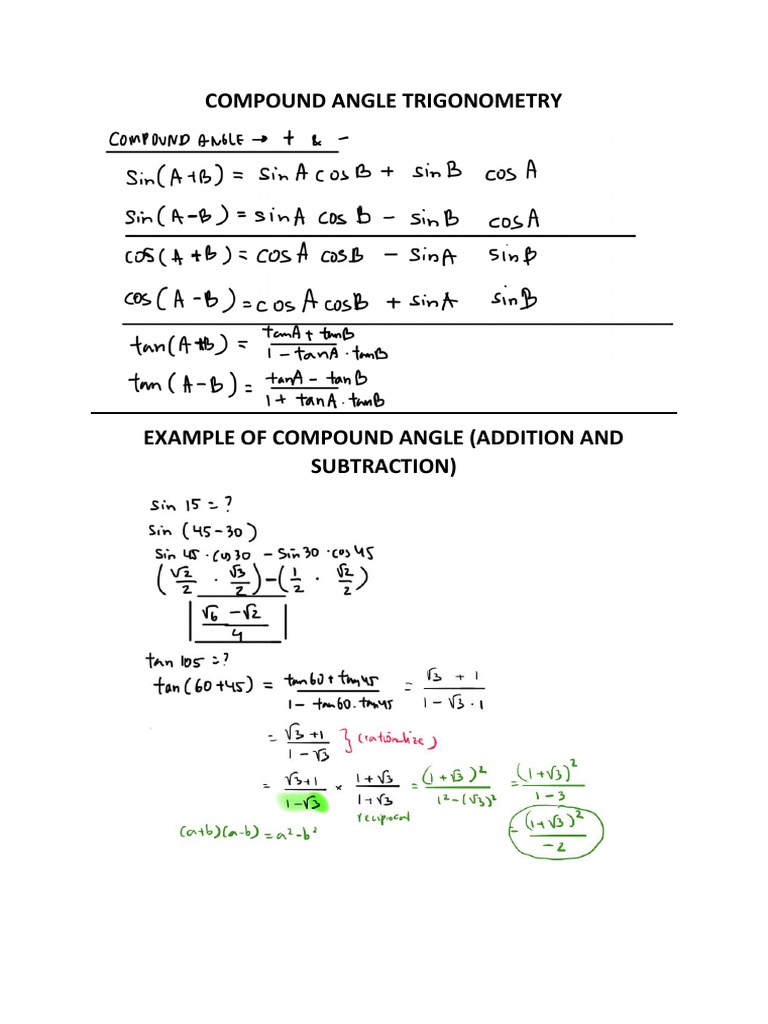 COMPOUND ANGLE TRIGONOMETRY
COMPOUND ANGLE → + & -
Sin(A+B) = sin A cos B + sin B cos A
Sin(A-B) = sin A cos B - sin B cos A
cos(A+B) = cos A cos B - sin A sin B
cos(A-B) = cos A cos B + sin A sin B
tan(A+B) = (tanA + tanB)/(1 - tanA · tanB)
tan(A-B) = (tanA - tanB)/(1 + tanA · tanB)
EXAMPLE OF COMPOUND ANGLE (ADDITION AND
SUBTRACTION)
sin 15 = ?
sin (45-30)
sin 45 · cos 30 - sin 30 · cos 45
(√2/2 · √3/2) - (1/2 · √2/2)
(√6 - √2)/4
tan 105 = ?
tan(60+45) = (tan60 + tan45)/(1 - tan60 · tan45) = (√3 + 1)/(1 - √3 · 1)
= (√3+1)/(1-√3) } (rationalize)
= (√3+1)/(1-√3) × (1+√3)/(1+√3) = (1+√3)²/(1²-(√3)²) = (1+√3)²/(1-3)
reciprocal
(a+b)(a-b) = a²-b²
= (1+√3)²/-2